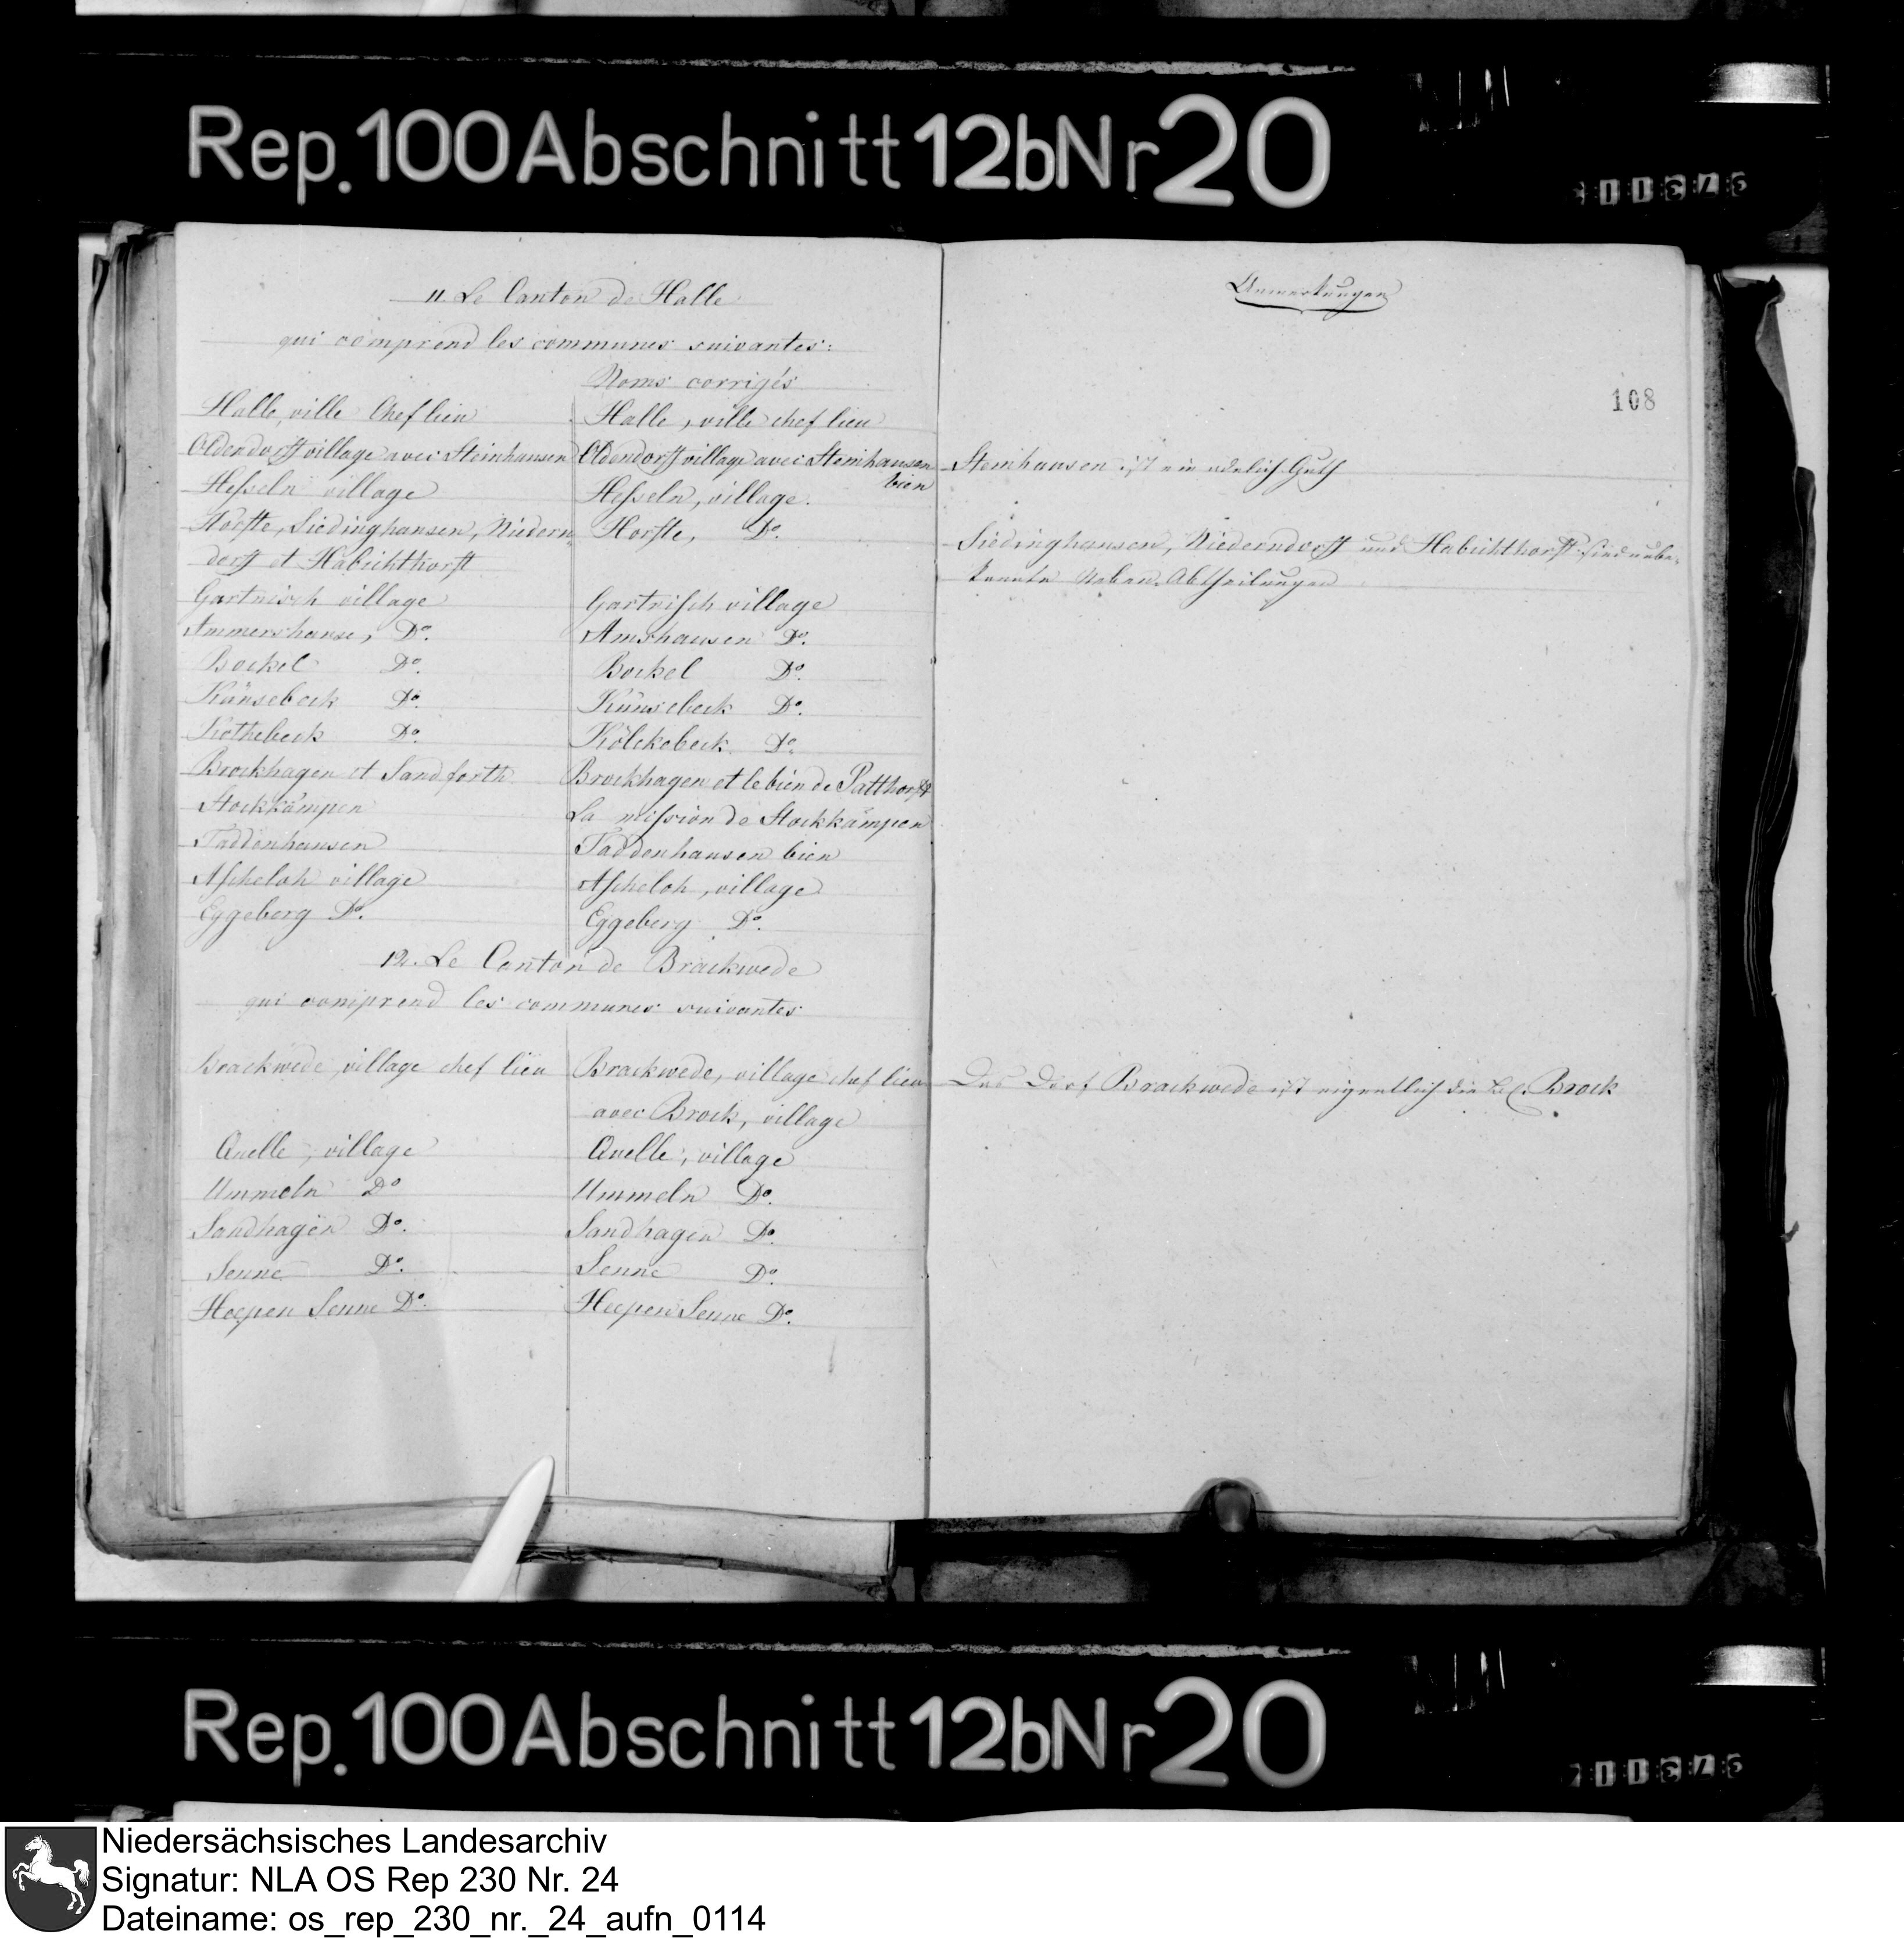 Rep. 100 Abschnitt 12b Nr 20
11. Le Canton de Halle
Anmerkungen
qui comprend les communes suivantes:
Noms corrigés
108
Halle, ville Chef lieu
Halle, ville chef lieu
Oldendorff village avec Steinhausen
Oldendorff village avec Steinhausen
bien
Steinhausen ist ein adelich Guth
Hesseln village
Hesseln, village.
Hörste, Siedinghausen, Niedern
Horste, Do.
Siedinghausen, Niederndorff und Habichthorst sind unbe-
dorff et Habichthorst
kannte Neben-Abtheilungen
Gartnisch village
Gartnisch village
Ammershause, Do.
Amshausen Do.
Bockel Do.
Bockel Do.
Künsebeck Do.
Künsebeck Do.
Kothebeck Do.
Kölckebeck Do.
Brockhagen et Sandforth
Brockhagen et le bien de Patthorst
Stockkämpen
La mission de Stockkämpen
Taddenhausen
Taddenhausen bien
Ascheloh village
Ascheloh, village
Eggeberg Do.
Eggeberg Do.
12. Le Canton de Brackwede
qui comprend les communes suivantes
Brackwede, village chef lieu
Brackwede, village chef lieu
avec Brock, village
Das Dorf Brackwede ist eigentlich die Brock
Quelle, village
Quelle, village
Ummeln Do
Ummeln Do.
Sandhagen Do.
Sandhagen Do.
Senne Do.
Senne Do.
Heepen Senne Do.
Heepen Senne Do.
Rep. 100 Abschnitt 12b Nr 20
Niedersächsisches Landesarchiv
Signatur: NLA OS Rep 230 Nr. 24
Dateiname: os_rep_230_nr._24_aufn_0114